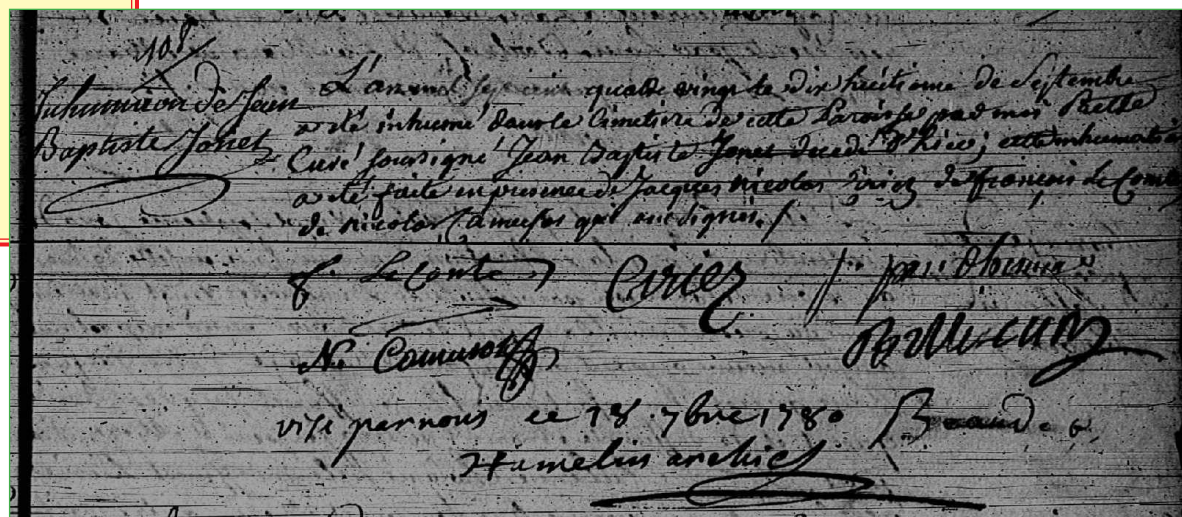 108
Inhumation de Jean
Baptiste Jonet
L'an mil sept cens quatre vingt le dix huitieme de Septembre
a été inhumé dans le Cimetiere de cette Paroisse par moi Prettre
Curé soussigné Jean Baptiste Jonet decedé d'hier; cette inhumation
a été faite en presence de Jacques Nicolas Ciriez de françois Le Comte
de Nicolas Camuson qui ont signés. /
f. LeConte
Ciriez
N. Camuson
visé par nous ce 18 7bre 1780
Hamelin archid